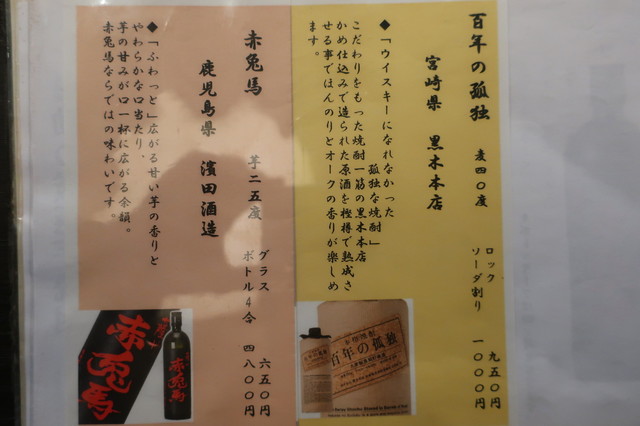 百年の孤独 麦四〇度 ロック 九五〇円
ソーダ割り 一〇〇〇円
宮崎県 黒木本店
◆「ウイスキーになれなかった
孤独な焼酎」
こだわりをもった焼酎一筋の黒木本店
かめ仕込みで造られた原酒を樫樽で熟成さ
せる事でほんのりとオークの香りが楽しめ
ます。
百年の孤独
赤兎馬 芋二五度 グラス 六五〇円
ボトル4合 四八〇〇円
鹿児島県 濱田酒造
◆「ふわっと」広がる甘い芋の香りと
やわらかな口当たり、
芋の甘みが口一杯に広がる余韻。
赤兎馬ならではの味わいです。
赤兎馬
赤兎馬